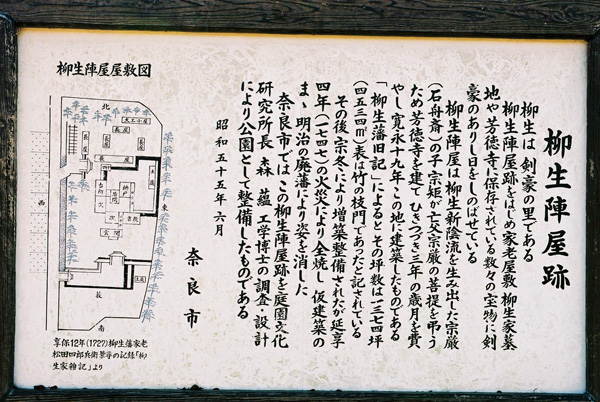 柳生陣屋跡
柳生は 剣豪の里である
柳生陣屋跡をはじめ家老屋敷 柳生家墓
地や芳徳寺に保存されている数々の宝物に剣
豪のありし日をしのばせている
柳生陣屋は柳生新陰流を生み出した宗厳
(石舟斎)の子 宗矩が亡父宗厳の菩提を弔う
ため芳徳寺を建て ひきつづき三年の歳月を費
やし 寛永十九年この地に建築したものである
「柳生藩旧記」によるとその坪数は一三七四坪
(四五三四㎡)表は竹の枝門であったと記されている
その後 宗冬により増築整備されたが 延享
四年(一七四七)の火災により全焼し 仮建築の
まゝ 明治の廃藩により姿を消した
奈良市では この柳生陣屋跡を庭園文化
研究所長 森 蘊 工学博士の調査・設計
により公園として整備したものである
昭和五十五年六月
奈良市
柳生陣屋屋敷図
北
東
西
南
長屋
玄関
台所
書院
享保12年(1727)柳生藩家老
松田四郎兵衛景平の記録「柳
生家雑記」より